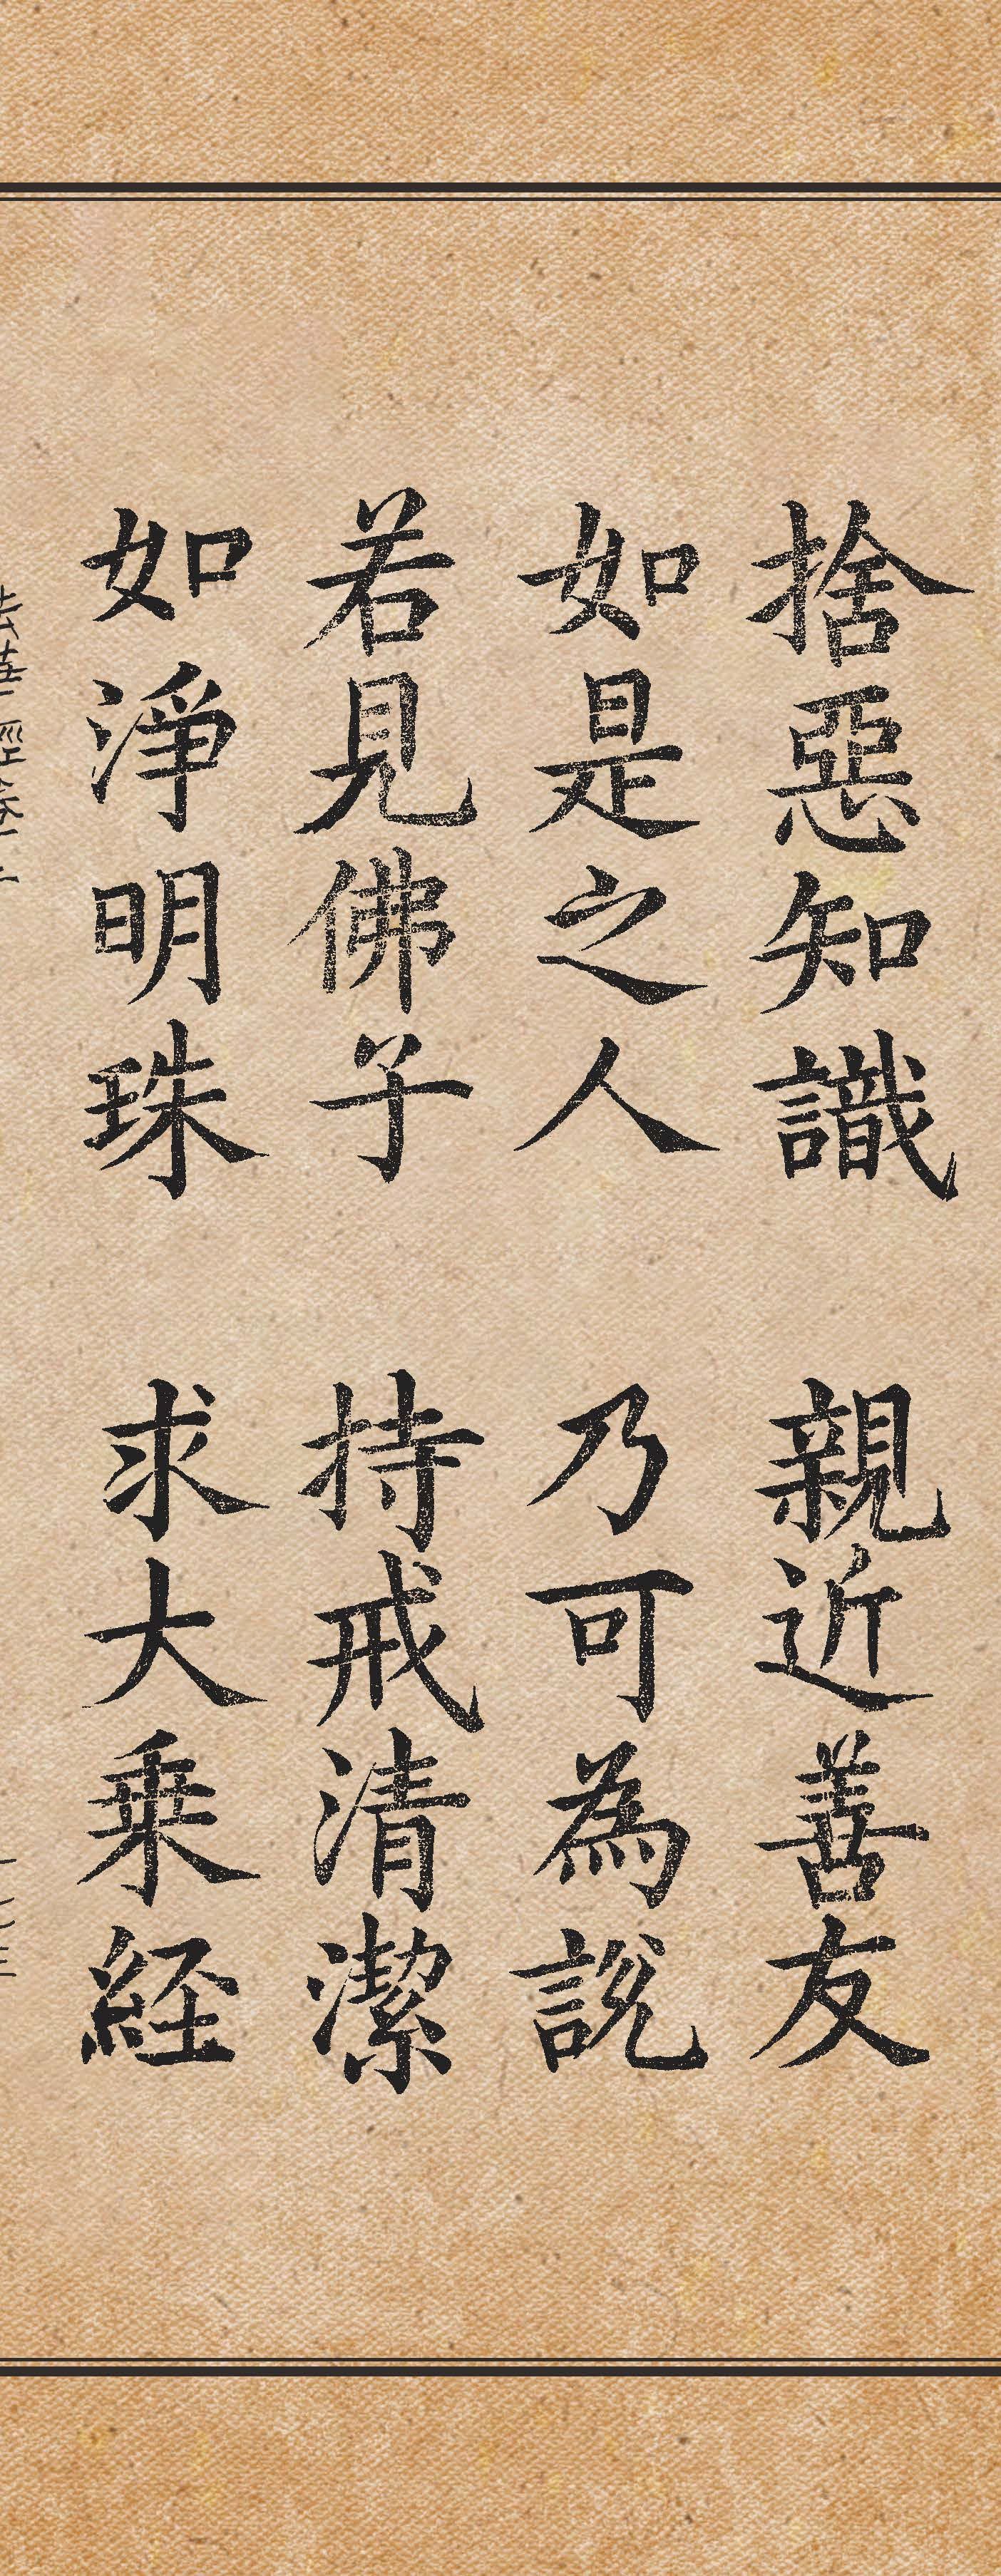 捨惡知識 親近善友
如是之人 乃可為說
若見佛子 持戒清潔
如淨明珠 求大乗経